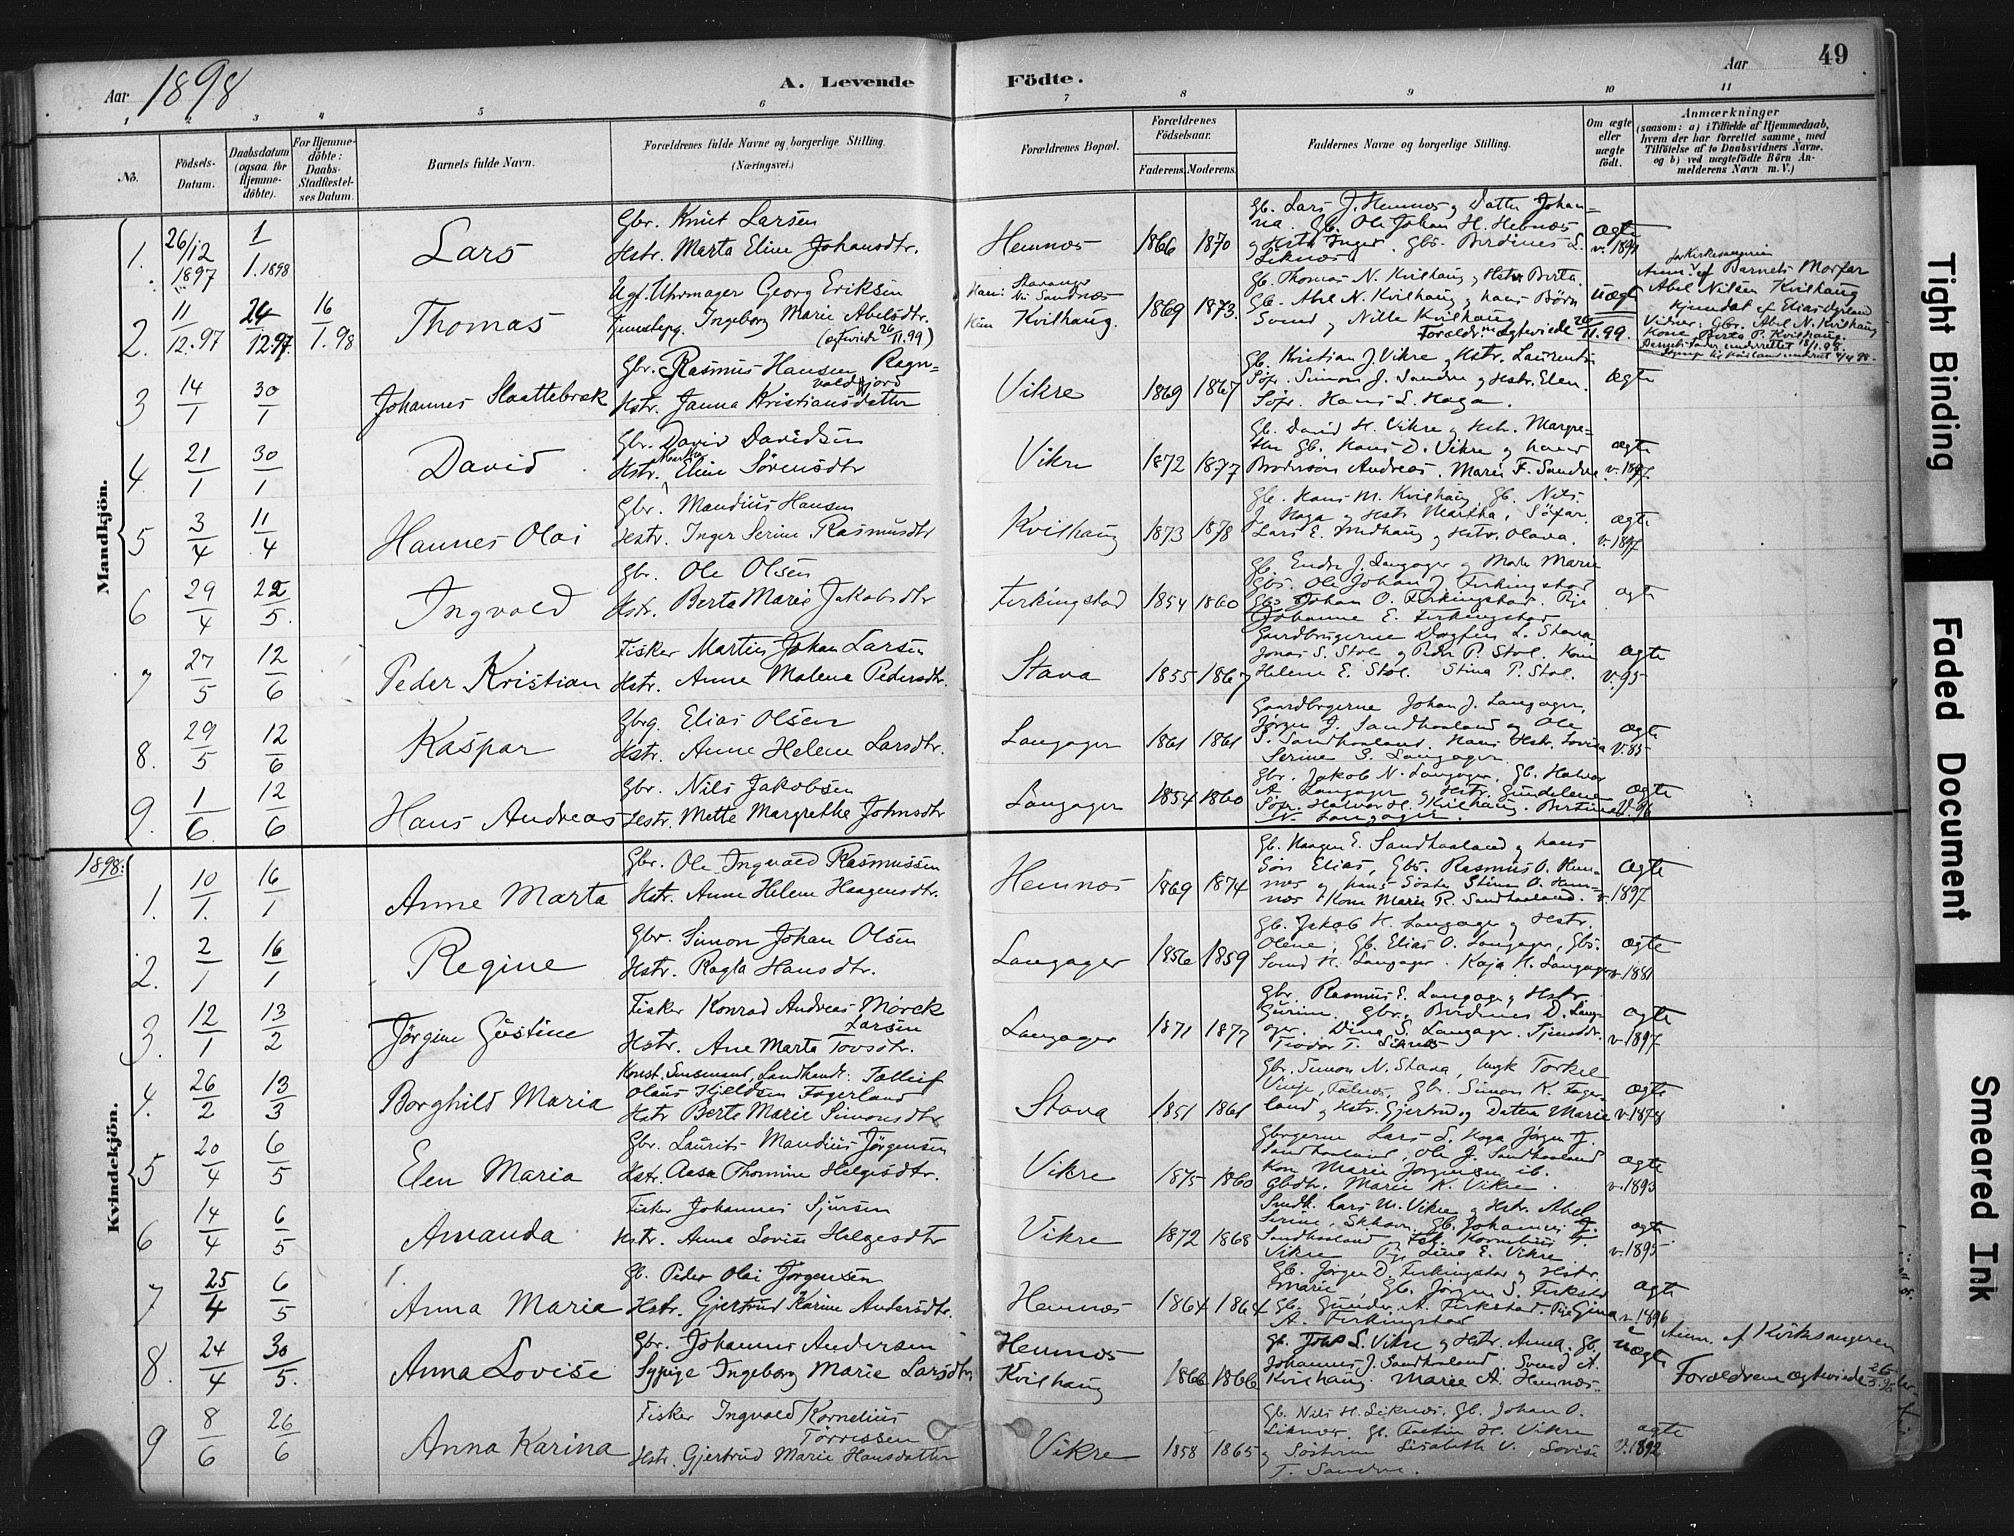 49
Aar 1898
A. Levende Fødte.
Aar
1 2 3 4 5 6 7 8 9 10 11
No.
Fødsels-Datum.
Daabsdatum (ogsaa for Hjemme-døbte).
For Hjemme-døbte: Daabs-Stadfæstel-ses Datum.
Barnets fulde Navn.
Forældrenes fulde Navne og borgerlige Stilling. (Næringsvei.)
Forældrenes Bopæl.
Forældrenes Fødselsaar.
Faderens. Moderens.
Faddernes Navne og borgerlige Stilling.
Om ægte eller uægte født.
Anmærkninger
(saasom: a) i Tilfælde af Hjemmedaab, hvem der har forrettet samme, med Tilføielse af to Daabsvidners Navne. og b) ved uægtefødte Børn An-melderens Navn m. V.)
Mandkjøn.
1. 26/12 1897 1/1. 1898 Lars
Gbr. Knut Larsen
Hstr. Marta Eline Johansdtr.
Hemnæs 1866 1870
Gb. Lars J. Hemnæs, Datter Johan-
ægte
2. 11/12.97 16/1.98 Thomas
Ugf. Uhrmager Georg Eriksen
Ingeborg Marie Abelsdtr.
(ægteviede 26/11.99)
Stavanger
Kvilhaug. 1869 1873.
Gb. Thomas N. Kvilhaug, Hstr. Berta
Gb. Abel N. Kvilhaug og hans Børn
Forældr. ægteviede 26/11.99.
uægte
Anm. af Barnets Morfar
Abel Nilsen Kvilhaug
3 14/1 30/1 Johannes Slaattebræk
Gbr. Rasmus Hansen Ragn-
valdsfjord
Hstr. Janna Kristiansdatter
Vikre 1869 1867
Gb. Kristian J. Vikre og Hstr. Laurentse
Søfr. Simon J. Sandve og Hstr. Elen.
Søfr. Hans L. Haga.
Ægte
4. 21/1 30/1 David
Gbr. David Davidsen
Hstr. Eline Sørensdtr
Vikre 1872 1877
Gb. David H. Vikre og Hstr. Margre-
the Gb. Hans D. Vikre og hans
Brodersøn Andreas. Marie F. Sandve
ægte v. 1897.
5 3/4 11/4 Hannes Olai
Gbr. Mandius Hansen
Hstr. Inger Serine Rasmusdtr
Kvilhaug 1873 1878
Gb. Hans M. Kvilhaug, Gb. Nils
J. Haga og Hstr Martha, Søfar.
Lars E. Midhaug og Hstr. Olava.
ægte v. 1897
6 29/4 22/5. Ingvald
Gbr. Ole Olsen
Hstr. Berta Marie Jakobsdtr
Ferkingstad 1854 1860
Gb. Endre J. Langager og Marie
Gbs. Ole Johan J. Ferkingstad
Gbs Johan O. Ferkingstad. Pige
Johanne E. Ferkingstad
ægte
7 27/5 12/6 Peder Kristian
Fisker Martin Johan Larsen
Hstr. Anne Malena Pedersdtr.
Stava 1855 1867
Gaardbrugerne Dagfin L. Stava,
Jonas S. Stol og Peder P. Stol. Kone
Helene E. Stol. Stina P. Stol.
ægte v. 95
8. 29/5 12/6 Kaspar
Gbrg. Elias Olsen
Hstr. Anne Helene Larsdtr.
Langager 1861 1861
Gaardbrgerne Johan J. Langager,
Jørgen J. Sandhaaland og Ole
S. Sandhaaland. Hans Hstr. Lovisa
Serine S. Langager
ægte v. 85
9. 1/6 12/6 Hans Andreas
Gbr. Nils Jakobsen
Hstr. Mette Margrethe Johnsdtr
Langager 1854 1860
Gbr. Jakob N. Langager, Gb. Halvor
A. Langager og Hstr. Gundelene
Søfr. Halvor H. Kvilhaug. Bertine
N. Langager.
ægte
1898:
Kvindekjøn.
1. 10/1. 16/1 Anne Marta
Gbr. Ole Ingvald Rasmussen
Hstr. Anne Helene Haagensdtr.
Hemnæs 1869 1874
Gb. Haagen E. Sandhaaland og hans
Søn Elias, Gbs. Rasmus O. Hem-
næs og hans Søster Stina O. Hem-
næs. Kone Marie R. Sandhaaland.
ægte v. 1897
2. 2/1 16/1 Regine
Gbr. Simon Johan Olsen
Hstr. Ragla Hansdtr.
Langager 1856 1859
Gb. Jakob H. Langager og Hstr.
Olene, Gb. Elias O. Langager, Gbs.
Svend H. Langager. Kaja H. Langager
ægte v. 1881
3. 12/1 13/2 Jørgine Gustine
Fisker Konrad Andreas Mørck
Larsen
Hstr. Ane Marta Tovsdtr.
Langager 1871 1877
Gbr. Rasmus E. Langager og Hstr.
Gurine. Gbr. Berdines D. Lang-
ager. Dina S. Langager. Tjenestdr.
Teodor T. Liknes
ægte v. 1897
4. 26/2 13/3 Borghild Maria
Landhandl. Tolleif
Olaus Kjeldsen Fagerland
Hstr Berte Marie Simonsdtr
Stava 1851 1861
Gbr. Simon N. Stava, Ungk Torkel
Vinje, Falnes, Gbr. Simon K. Fager-
land og Hstr. Gjertrud og Datter Marie
ægte v. 1878
5 20/4 6/5 Elen Maria
Gbr. Laurits Mandius Jørgensen
Hstr. Aasa Thomine Helgesdtr.
Vikre 1875 1860
Gbrgerne Lars L. Haga Jørgen J.
Sandhaaland, Ole J. Sandhaaland
Kone Marie Jørgensen ib.
Gbdtr. Marie K. Vikre.
ægte v. 1893
6 14/4 6/5 Amanda
Fisker Johannes Sjursen
Hstr. Anna Lovise Helgesdtr
Vikre 1872 1868
Smdh. Lars M. Vikre og Hstr. Abel
Serine, Skhavn. Gb. Johannes J.
Sandhaaland, Fsk. Kornelius T.
Vikre Pg. Line E. Vikre
ægte v. 1895
7 25/4 6/5 Anna Maria
Gb. Peder Olai Jørgensen
Hstr. Gjertrud Karine Andersdtr.
Hemnæs 1864 1864
Gb. Jørgen D. Ferkingstad og Hstr.
Marie, Gb. Jørgen S. Ferkstad
Gb. Gunder A. Ferkstad. Pige Gina
A. Ferkingstad
ægte v. 1896
8. 24/4 30/5. Anna Lovise
Gbr. Johannes Andersen
Sypige Ingeborg Marie Larsdtr
Hemnæs
Kvilhaug 1866 1866
Gb. Johs L. Vikre og Hstr. Anna, Gb.
Johannes J. Sandhaaland, Svend A.
Kvilhaug. Marie A. Hemnæs.
uægte
Anm. af Kirkesangeren
Forældrene ægteviede
9 8/6 26/6 Anna Karina
Fisker Ingvald Kornelius
Torressen
Hstr. Gjertrud Marie Hansdatter
Vikre 1858 1865
Gb. Nils H. Liknes, Gb. Johan O.
Liknes, Gb. Torstin H. Vikre
og Søstrene Lisabeth V. Lovise
T. Sandve.
ægte v. 1892
Tight Binding
Faded Document
Smeared Ink